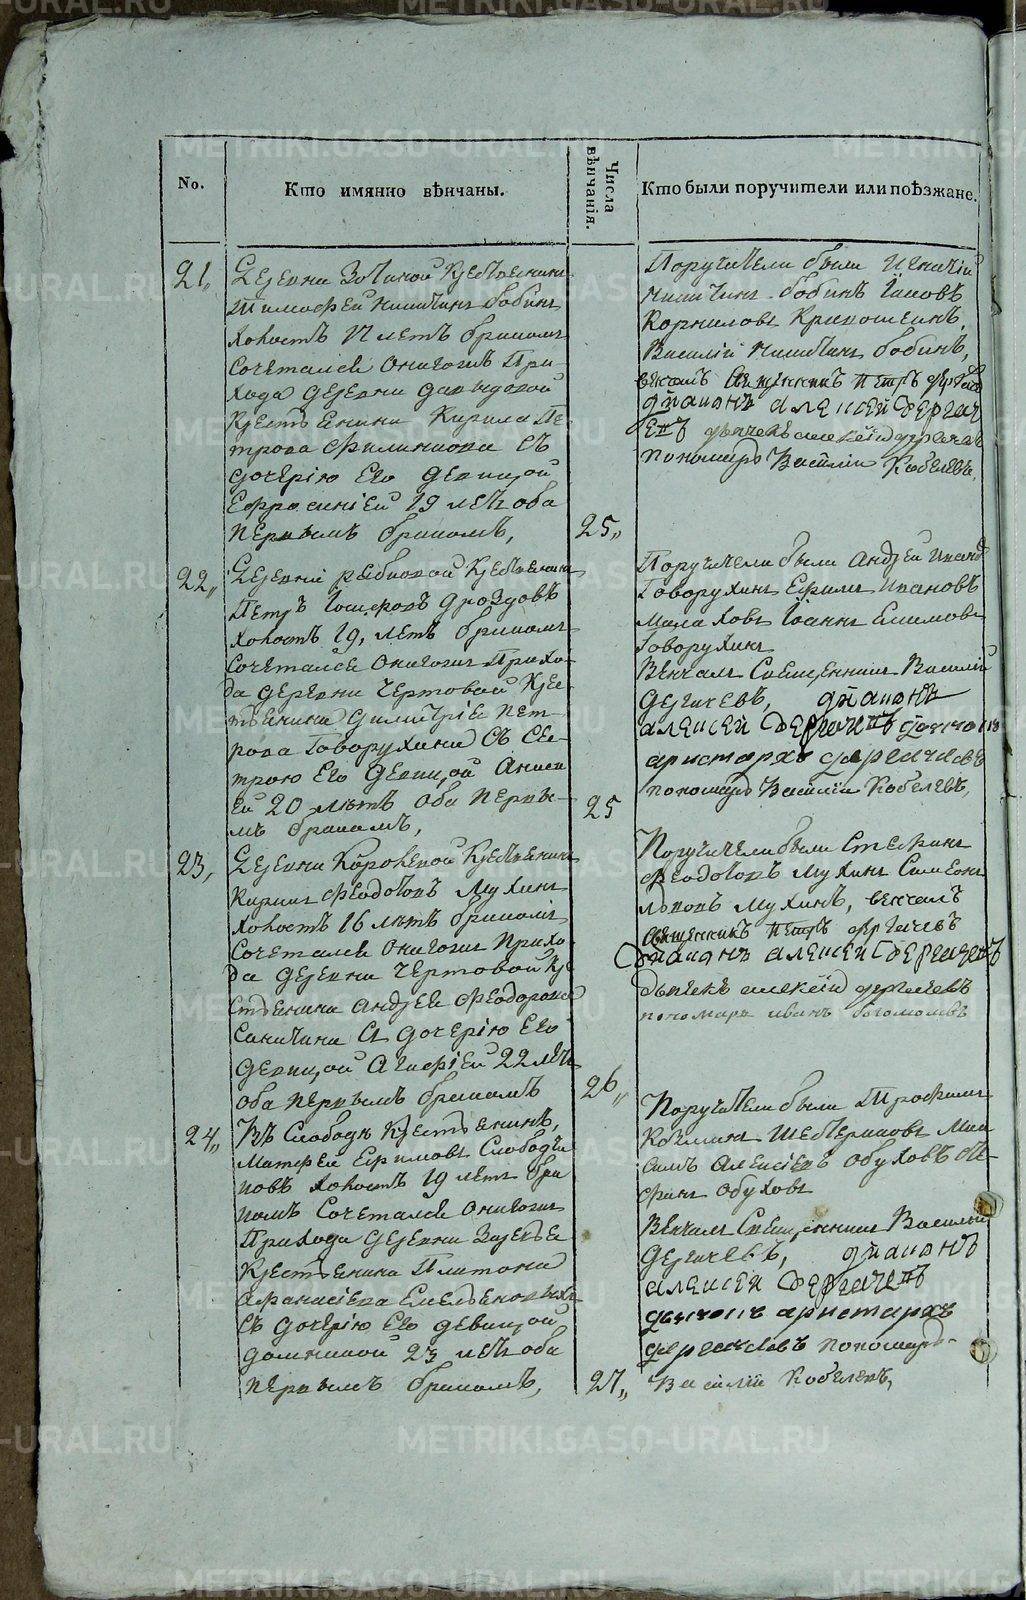 No.
Кто имянно вѣнчаны.
Числа вѣнчанія.
Кто были поручители или поѣзжане.
21,
Деревни Зотиной Крестьянинъ
Тимофей Никитинъ бобинъ
холостъ 17 летъ бракомъ
сочетался оникогиж При-
хода деревни давыдовой
Крестьянина Кирила Пе-
трова Филипкова съ
дочерїю Его девицой
Ефросинїей 19 летъ оба
первымъ бракомъ,
25,,
Поручители были Игнатїй
Никитинъ бобинъ Іаковъ
Корниловъ Кривошеинъ,
Василїй Никитинъ бобинъ,
венчалъ священникъ петръ дергачев
дїаконъ алексей Дергаче
въ дьячекъ алекѣй дергачевъ
пономарь Василїи Кобелевъ
22,,
Деревнї рыбновой Крестьянинъ
Петръ Іосифовъ дроздовъ
холостъ 19, летъ бракомъ
сочетался оникогиж Прихо-
да деревни Чертовой Крес-
тьянина Димитрїя Пет-
рова Говорухина съ сес-
трою Его девицой Аниси
ей 20 лѣтъ оба первы-
мъ бракомъ,
25
Поручители были Андрей иванъ
Говорухинъ Ефимъ ивановъ
Малаховъ Іоаннъ Екимовъ
Говорухинъ
Венчалъ Священникъ Василїй
Дергачевъ, дїаконъ
алексей Дергачевъ дьячокъ
аристархъ дергачевъ
пономарь Василїи Кобелевъ,
23,
Деревни Королевой Крестьянинъ
Кирикъ Феодотовъ Мухинъ
холостъ 16 лѣтъ бракомъ
Сочетался оникогиж Прихо-
да деревни Чертовой Кре
стьянина Андрея Феодорова
Саничина съ дочерїю Его
девицой Агафїей 22 летъ
оба первымъ бракомъ
26,,
Поручители были Стефанъ
Феодотовъ Мухинъ Симеонъ
львовъ Мухинъ, венчалъ
священникъ петръ дергачевъ
Дїаконъ алексей Дергачевъ
дьячекъ алекѣй дергачевъ
пономарь иванъ богомоловъ
24,,
Въ Слободѣ Крестьянинъ,
Матфей Ефимовъ Слободчи
ковъ холостъ 19 летъ бра
комъ Сочетался оникогиж
Прихода Деревни Заречья
Крестьянина Платона
Афанасїева Емельяновыхъ
съ дочерїю Его девицой
домникой 23 летъ оба
первымъ бракомъ,
27,,
Поручители были Трофимъ
Козминъ Щербаковъ Мак
симъ алексѣевъ обуховъ Сте-
фанъ обуховъ
Венчалъ Священникъ Василїй
Дергачевъ, дїаконъ
алексей Дергачевъ
дьячокъ аристархъ
дергачевъ пономарь
Василїй Кобелевъ,
METRIKI.GASO-URAL.RU